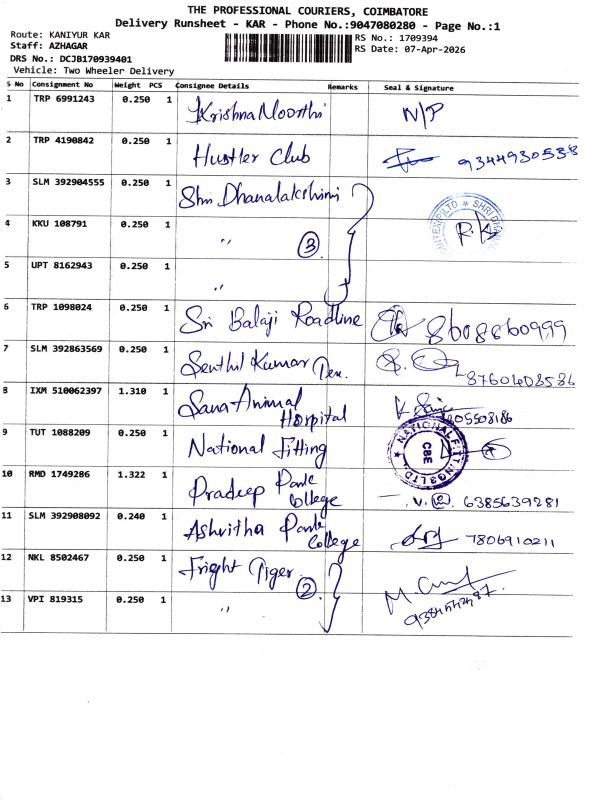 THE PROFESSIONAL COURIERS, COIMBATORE
Delivery Runsheet - KAR - Phone No.:9047080280 - Page No.:1
Route: KANIYUR KAR
RS No.: 1709394
Staff: AZHAGAR
RS Date: 07-Apr-2026
DRS No.: DCJB170939401
Vehicle: Two Wheeler Delivery
S No Consignment No Weight PCS Consignee Details Remarks Seal & Signature
1 TRP 6991243 0.250 1 Krishna Moorthi N/P
2 TRP 4190842 0.250 1 Hustler Club 9344930538
3 SLM 392904555 0.250 1 Shri Dhanalakshmi
4 KKU 108791 0.250 1 " 3 R.K
5 UPT 8162943 0.250 1 "
6 TRP 1098024 0.250 1 Sri Balaji Roadline 8608660999
7 SLM 392863569 0.250 1 Senthil Kumar 8760408586
8 IXM 510062397 1.310 1 Sana Animal Hospital
9 TUT 1088209 0.250 1 National Fitting NATIONAL FITTINGS LTD CBE
10 RMD 1749286 1.322 1 Pradeep Park College 6385639281
11 SLM 392908092 0.240 1 Ashritha Park College 7806910211
12 NKL 8502467 0.250 1 Fright Tiger 2
13 VPI 819315 0.250 1 "